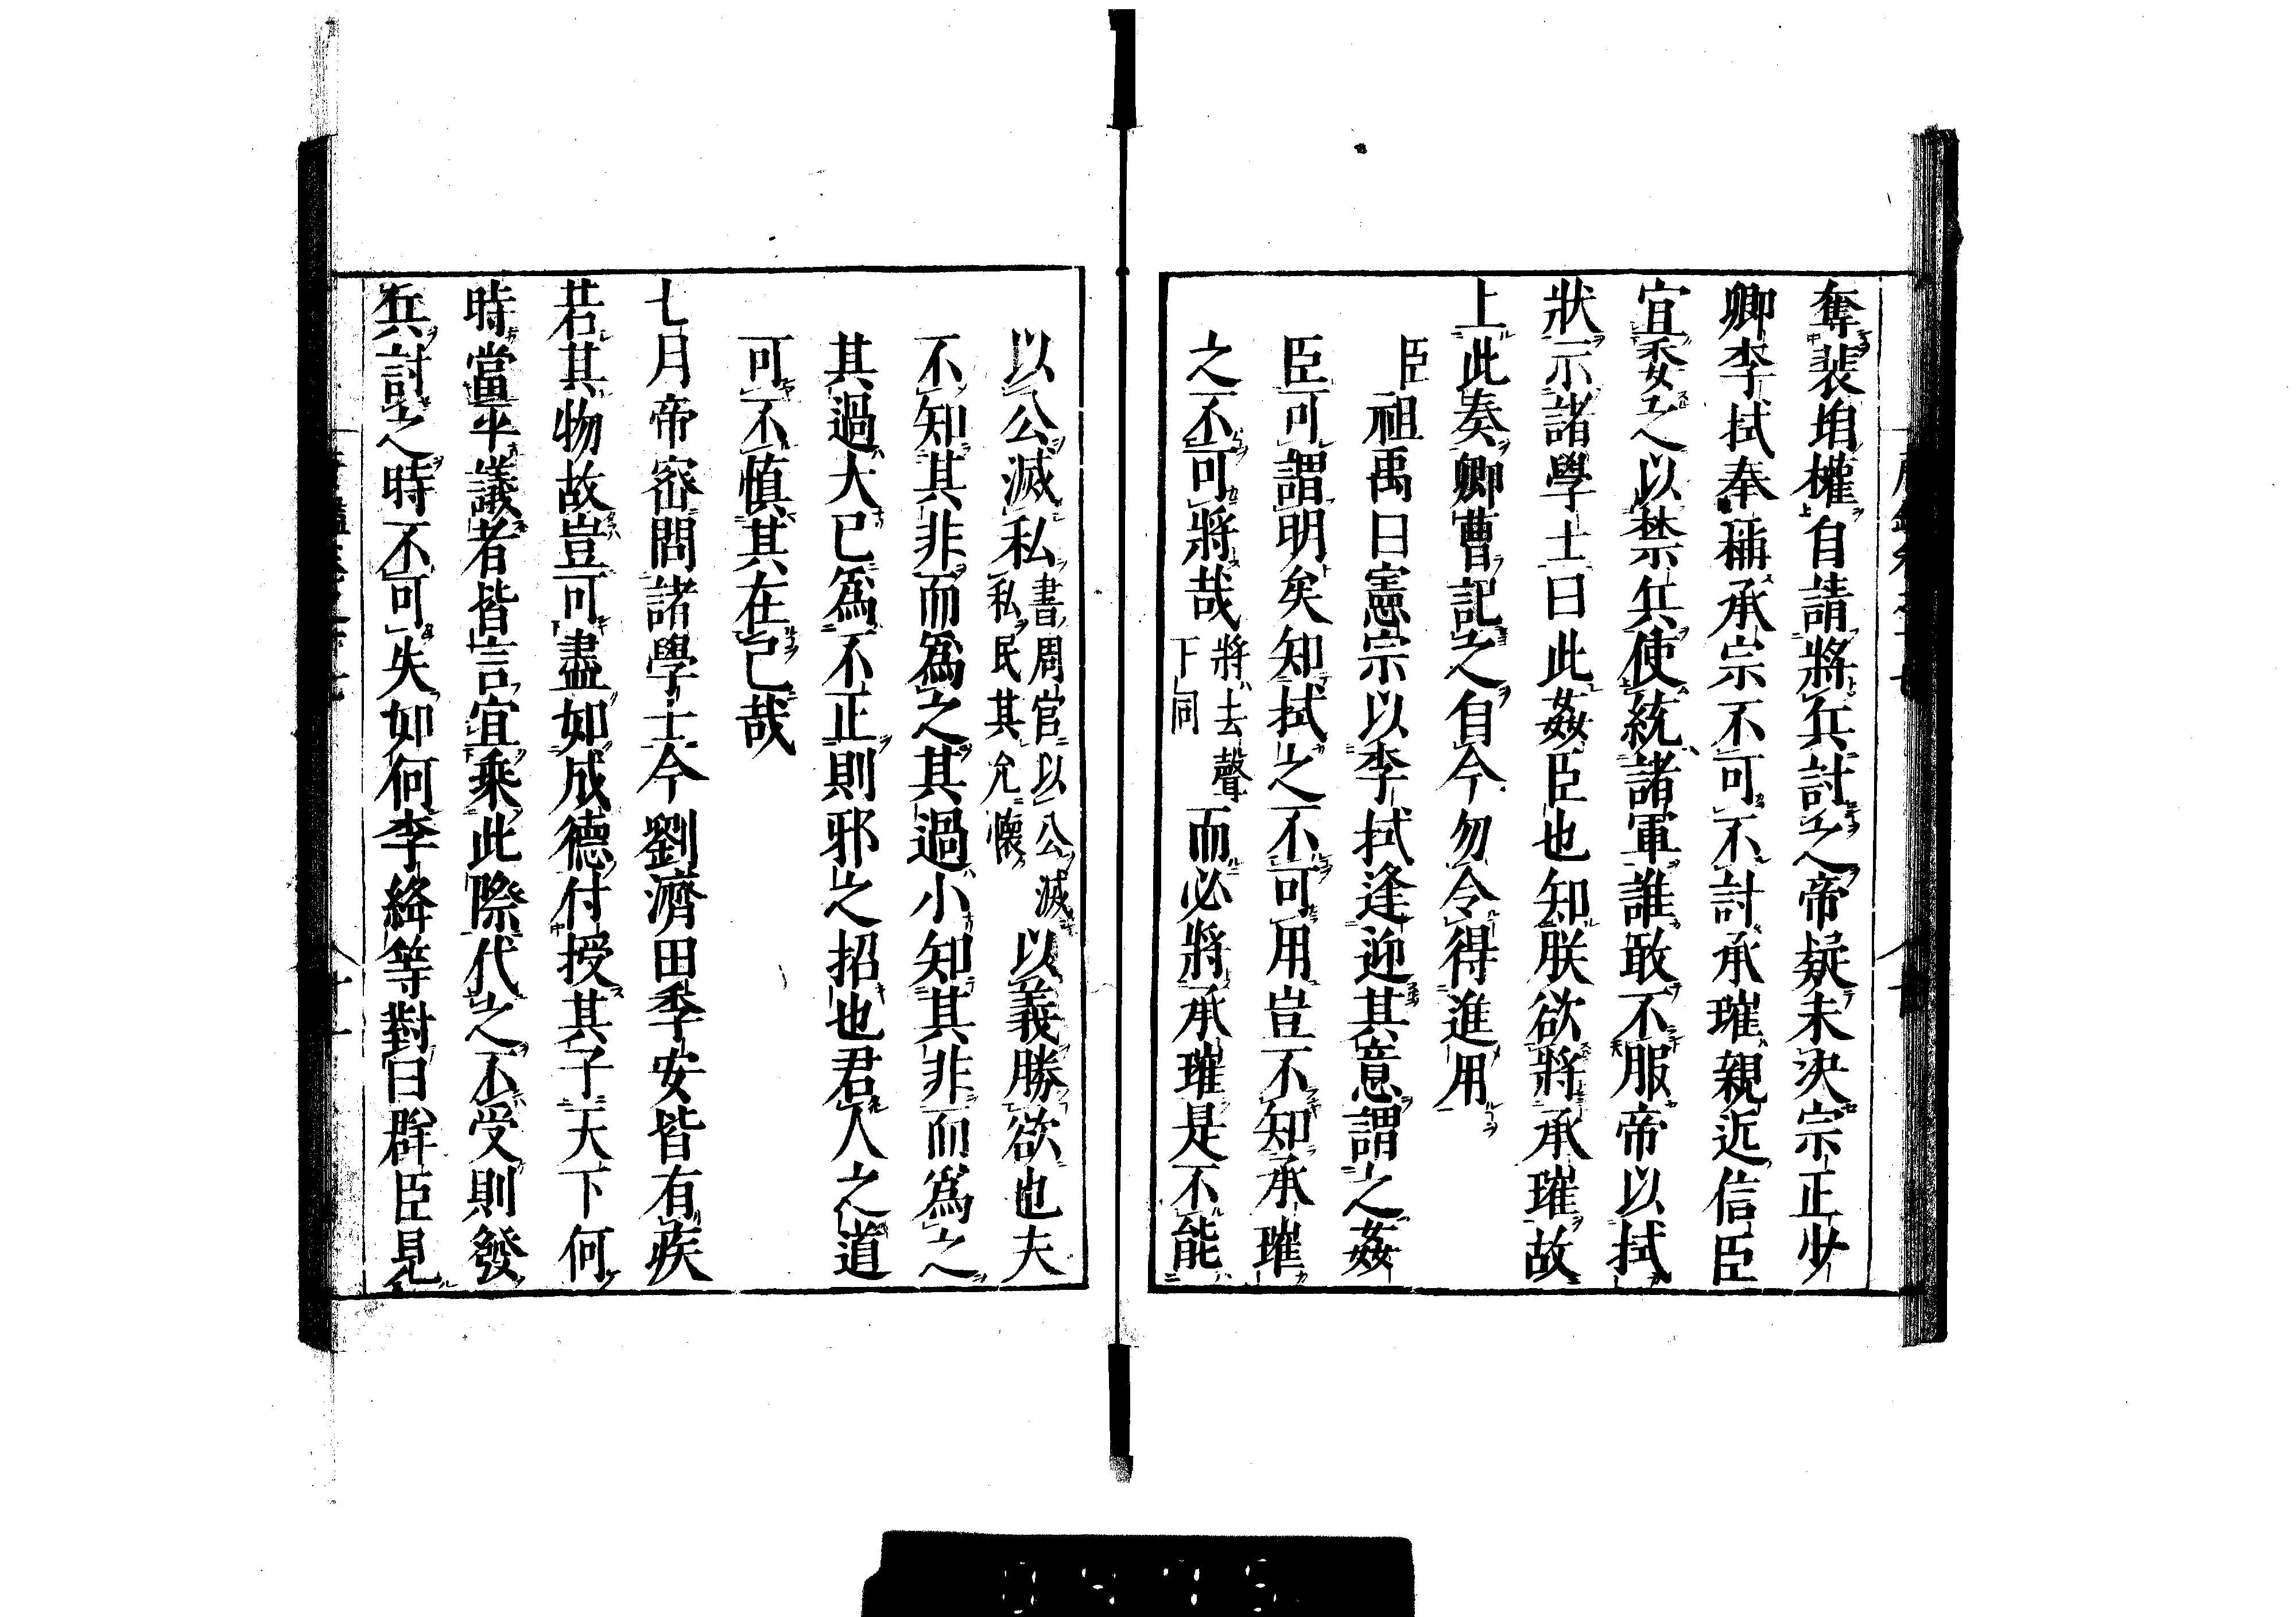 奪裴垍權自請將兵討之帝疑未決宗正少
卿李拭奉稱承宗不可不討承璀親近信臣
宜委之以禁兵使統諸軍誰敢不服帝以拭
狀示諸學士曰此姦臣也知朕欲將承璀故
上此奏卿曹記之自今勿令得進用
臣祖禹曰憲宗以李拭逢迎其意謂之姦
臣可謂明矣知拭之不可用豈不知承璀
之不可將哉
將去聲
下同
而必將承璀是不能
以公滅私
書周官以公滅
私民其允懷
以義勝欲也夫
不知其非而爲之其過小知其非而爲之
其過大已爲不正則邪之招也君人之道
可不慎其在己哉
七月帝密問諸學士今劉濟田季安皆有疾
若其物故豈可盡如成德付授其子天下何
時當平議者皆言宜乘此際代之不受則發
兵討之時不可失如何李絳等對曰群臣見